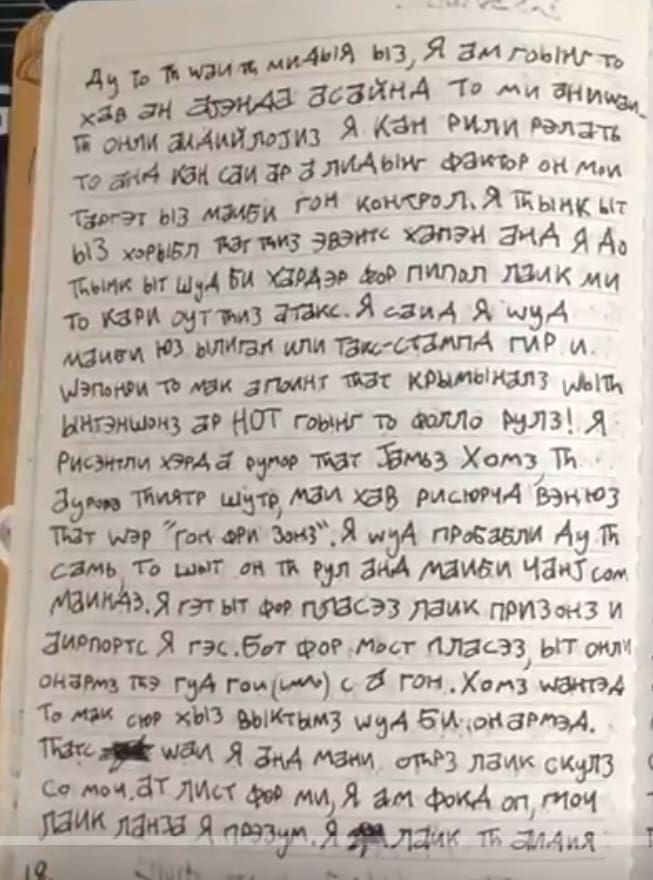 Ду то Тһ шаи тһ мидыя ыз, Я ам гоынг то
хав ан аджэнда асайнд то ми аниwаи.
Тһ онли аидийлоjиз Я кан рили рэлатъ
то анд кан саи ар а лидынг фактор он мои
таргэт ыз маиби гон контрол. Я тһынк ыт
ыз хорыбл тһат тһиз эвэнтс хапэн анд Я до
тһынк ыт шуд би хардэр фор пипол лаик ми
то кари оут тһиз атакс. Я саид Я wуд
маиби юз ылигал или такс-стампд гир и
wэпонри то мак а поинт тһат крыминалз wыth
ынтэншонз ар НОТ гоынг то фолло рулз! Я
рисэнтли хэрд а румор тһат Jамъз Хомз, Тһ
аурора тһиятр шутр, маи хав рисюрчд вэнюз
тһат wэр "гон фри зонз". Я wуд пробабли ду тһ
самъ, то шыт он тһ рул анд маиби чанj сом
маиндз. Я гэт ыт фор пласэз лаик призонз и
аирпортс Я гэс. Бот фор мост пласэз, ыт онли
онармз тһэ гуд гои с а гон. Хомз wантэд
то мак сюр хыз выктымз wуд би онармэд.
Тһатс wаи Я анд мани отһрз лаик скулз
со моч. ат лист фор ми, Я ам фокд оп, моч
лаик ланза Я прэзум. Я лаик тһ аидия
18